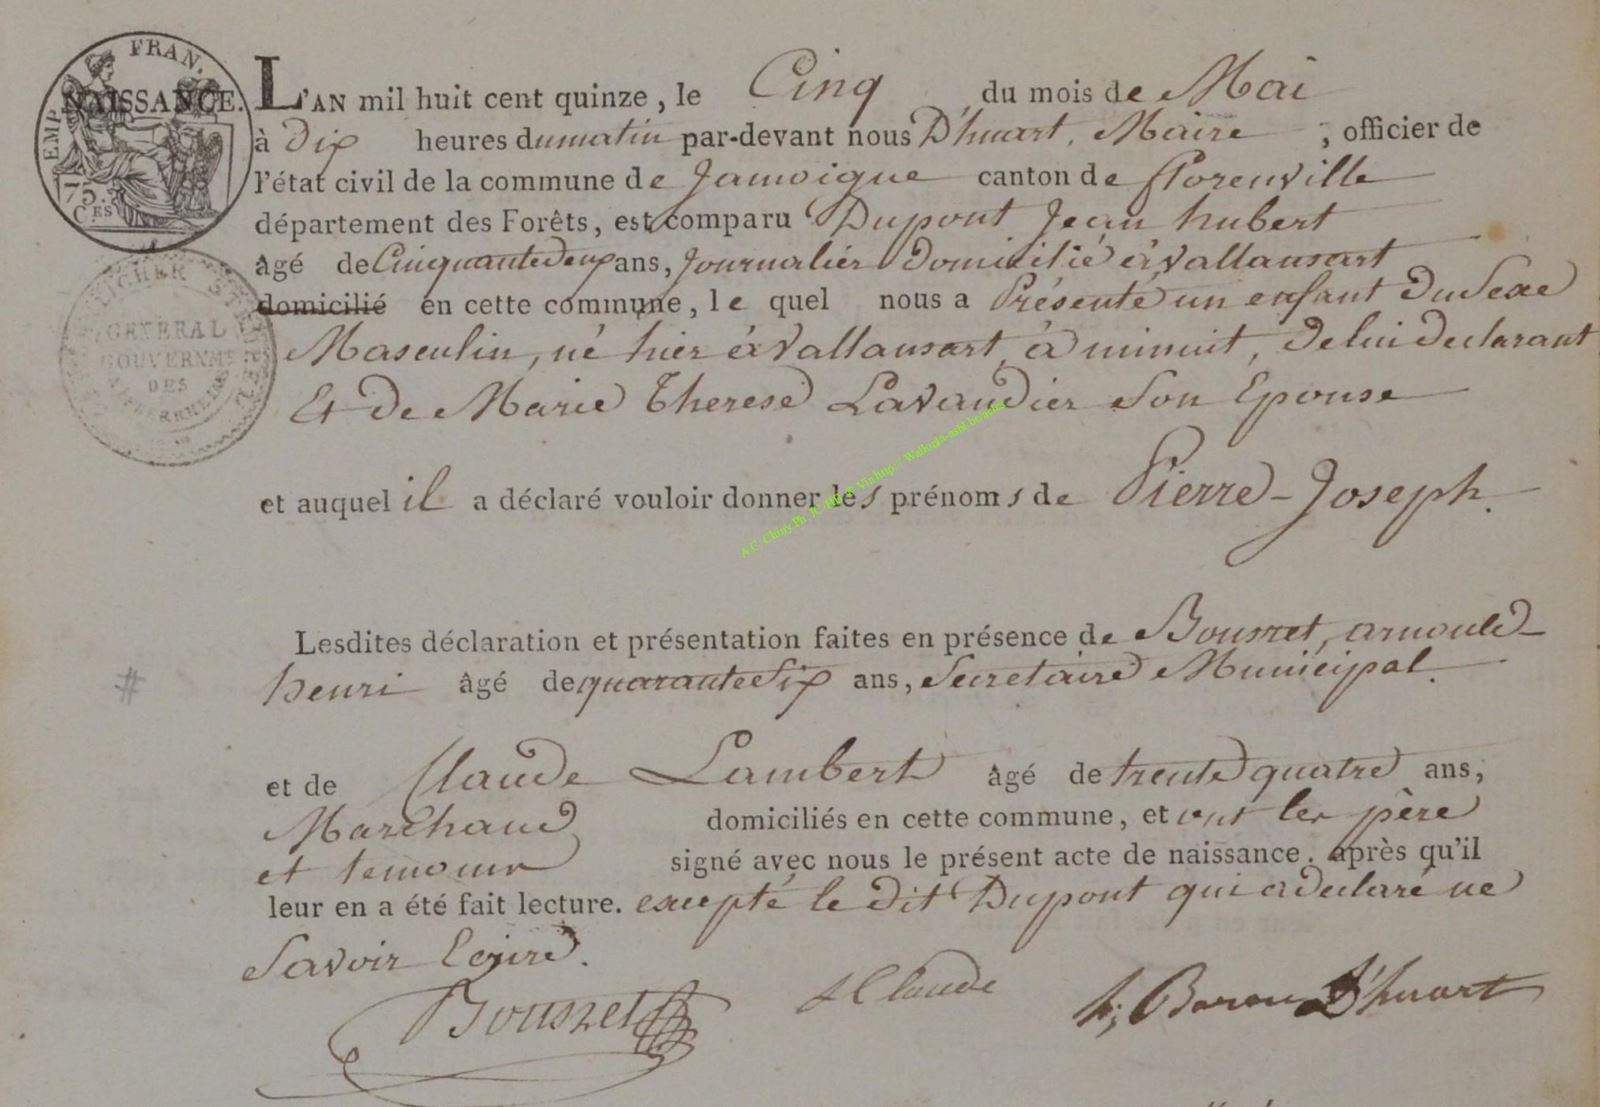 EMP. FRAN.
75.
C.ES
NAISSANCE.
L'AN mil huit cent quinze, le Cinq du mois de Mai
à Dix heures du matin par-devant nous D'huart, Maire, officier de
l'état civil de la commune de Jamoigne canton de florenville
département des Forêts, est comparu Dupont Jean hubert
âgé de Cinquante deux ans, Journalier domicilié à vallansart
domicilié en cette commune, le quel nous a Présenté un enfant du Sexe
GENERAL
GOUVERNEM
DES
Masculin, né hier à vallansart, à minuit, de lui declarant
Et de Marie Therese Lavaudier Son Epouse
et auquel il a déclaré vouloir donner les prénoms de Pierre-Joseph.
Lesdites déclaration et présentation faites en présence de Bousret, arnould
henri âgé de quarante Six ans, Secretaire Municipal.
#
et de Claude Lambert âgé de trente quatre ans,
Marchand domiciliés en cette commune, et ont les père
et temoins signé avec nous le présent acte de naissance. après qu'il
leur en a été fait lecture. excepté le dit Dupont qui a declaré ne
Savoir Ecrire.
Bousret Claude Baron D'huart